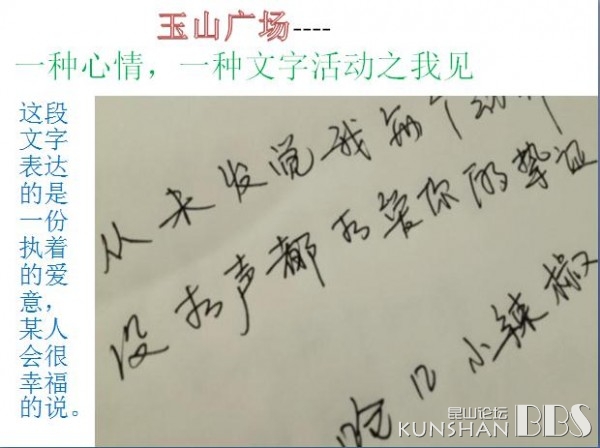 玉山广场----
一种心情，一种文字活动之我见
这段
文字
表达
的是
一份
执着
的爱
意，
某人
会很
幸福
的说。
从未发觉我每个动作
没有声都有爱你的挚证
呛口小辣椒
昆山论坛
KUNSHAN BBS